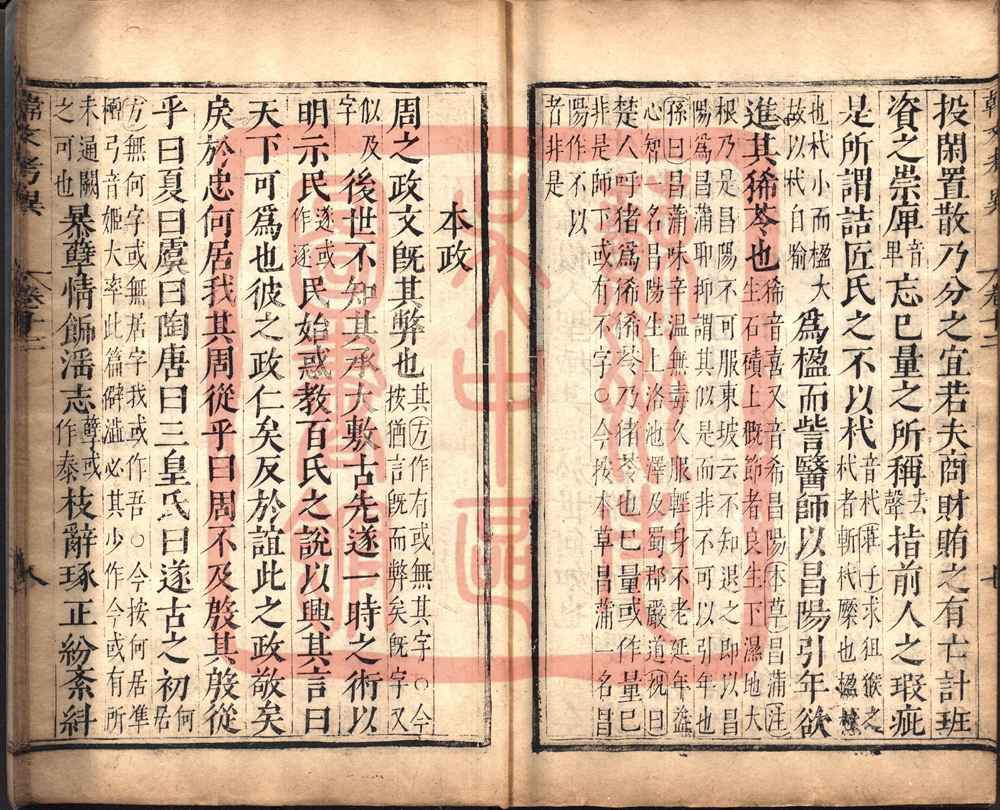 投閑置散乃分之宜若夫商財賄之有亡計班
資之崇庳音卑忘己量之所稱去聲指前人之瑕疵
是所謂詰匠氏之不以杙音杙莊子求狙猴之
杙者斬杙橜也楹
也杙小而楹大
故以杙自喻
爲楹而訾醫師以昌陽引年欲
進其豨苓也豨音喜又音希昌陽本草昌蒲注
生石磧上概節者良生下濕地大
根乃是昌陽不可服東坡云不知退之即以昌
陽爲昌蒲耶抑謂其似是而非不可以引年也
孫曰昌蒲味辛温無毒久服輕身不老延年益
心智名昌陽生上洛池澤及蜀郡嚴道祝曰
楚人呼猪爲豨豨苓乃猪苓也己量或作量己
非是師下或有不字○今按本草昌蒲一名昌
陽作不以
者非是
本政
周之政文旣其弊也其方作有或無其字○今
按猶言旣而弊矣旣字又
似及
字
後世不知其承大敷古先遂一時之術以
明示民遂或作逐民始惑教百氏之說以興其言曰
天下可爲也彼之政仁矣反於誼此之政敬矣
戾於忠何居我其周從乎曰周不及殷其殷從
乎曰夏曰虞曰陶唐曰三皇氏曰遂古之初何居
方無何字或無居字我或作吾○今按何居準
檀弓音姬大率此篇僻澁必其少作今或有所
未通闕
之可也
暴孽情飾潘志孽或作泰枝辭琢正紛紊糾
韓文考異
卷十二
八